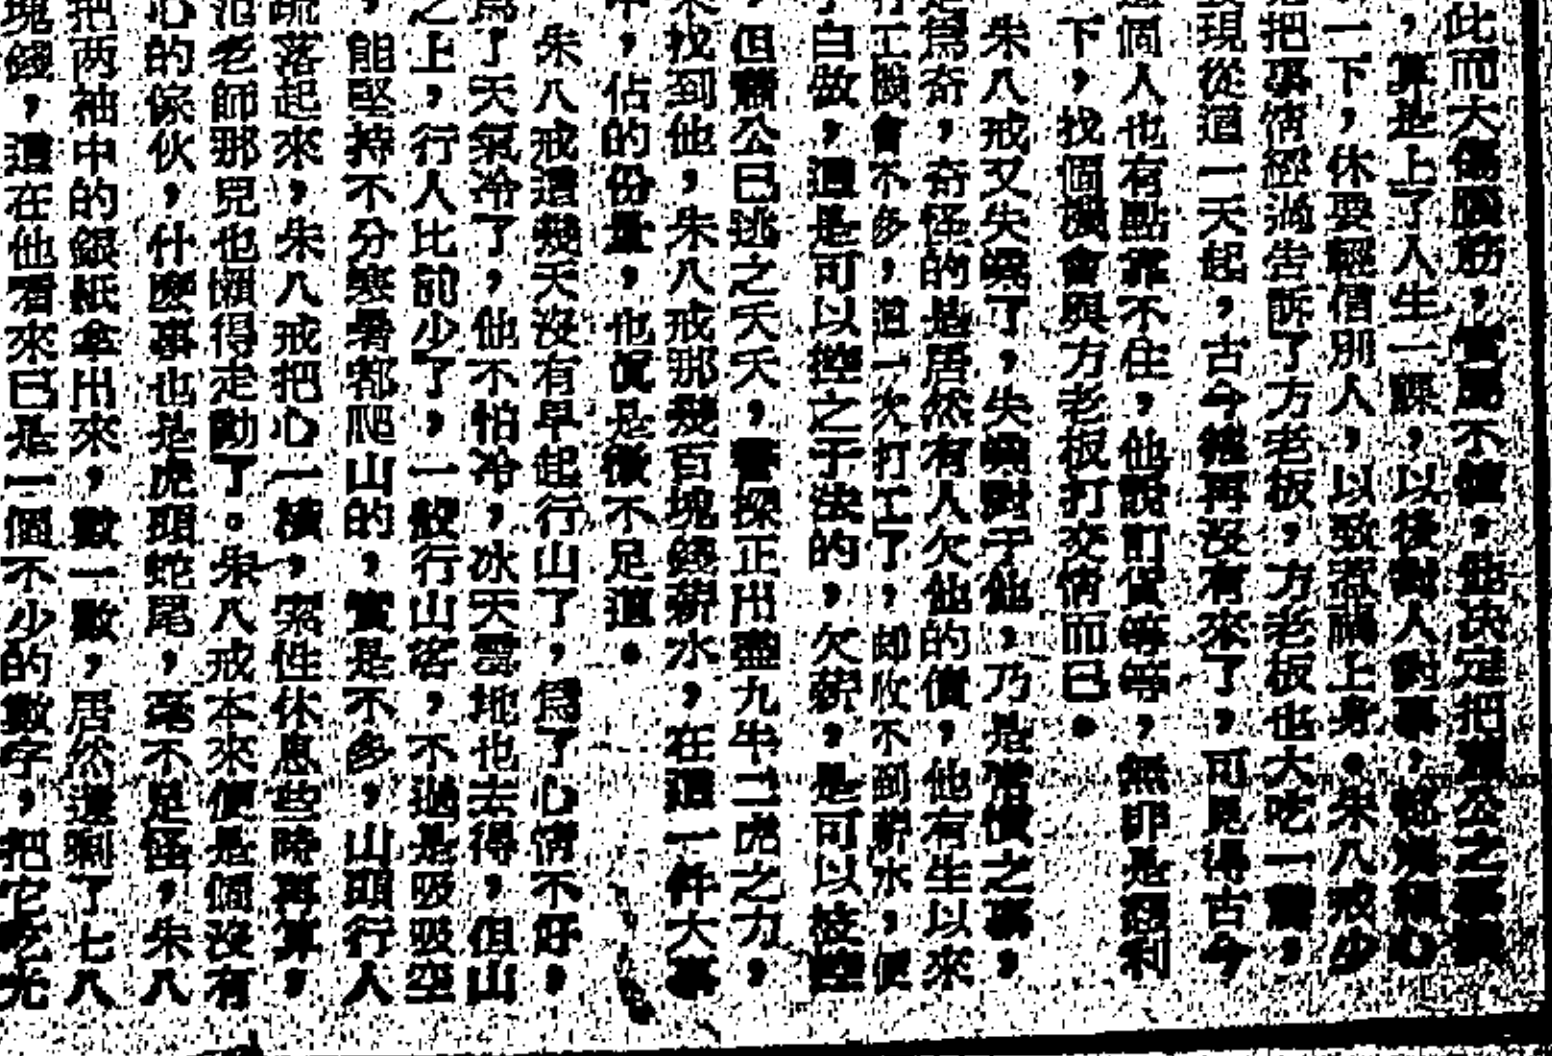 此而大傷腦筋，當局不查，他決定把蕭公之事
，算是上了人生一課，以後對人對事，
一下，休要輕信別人，以致惹禍上身。朱八戒少
把事情經過告訴了方老板，方老板也大吃一驚，
現從這一天起，古今雄再沒有來了，可見得古今
這個人也有點靠不住，他說訂貨等等，無非是
下，找個機會與方老板打交情而已。
朱八戒又失業了，失業對于他，乃是
是爲奇，奇怪的是居然有人欠他的債，他有生以來
打工機會不多，這一次打工了，却收不到薪水，便
白做，這是可以控之于法的，欠薪，是可以被控
，但蕭公已逃之夭夭，警探正出盡九牛二虎之力，
來找到他，朱八戒那幾百塊錢薪水，在這一件大事
中，佔的份量，也眞是微不足道。
朱八戒這幾天沒有早起行山了，爲了心情不好，
爲了天氣冷了，他不怕冷，冰天雪地也去得，但山
之上，行人比前少了，一般行山客，不過是吸吸空
，能堅持不分寒暑都爬山的，實是不多，山頭行人
疏落起來，朱八戒把心一橫，索性休息些時再算，
范老師那兒也懶得走動了。朱八戒本來便是個沒有
心的傢伙，什麼事也是虎頭蛇尾，毫不足怪，朱八
把两袖中的銀紙拿出來，數一數，居然還剩了七八
塊錢，這在他看來已是一個不少的數字，把它吃光